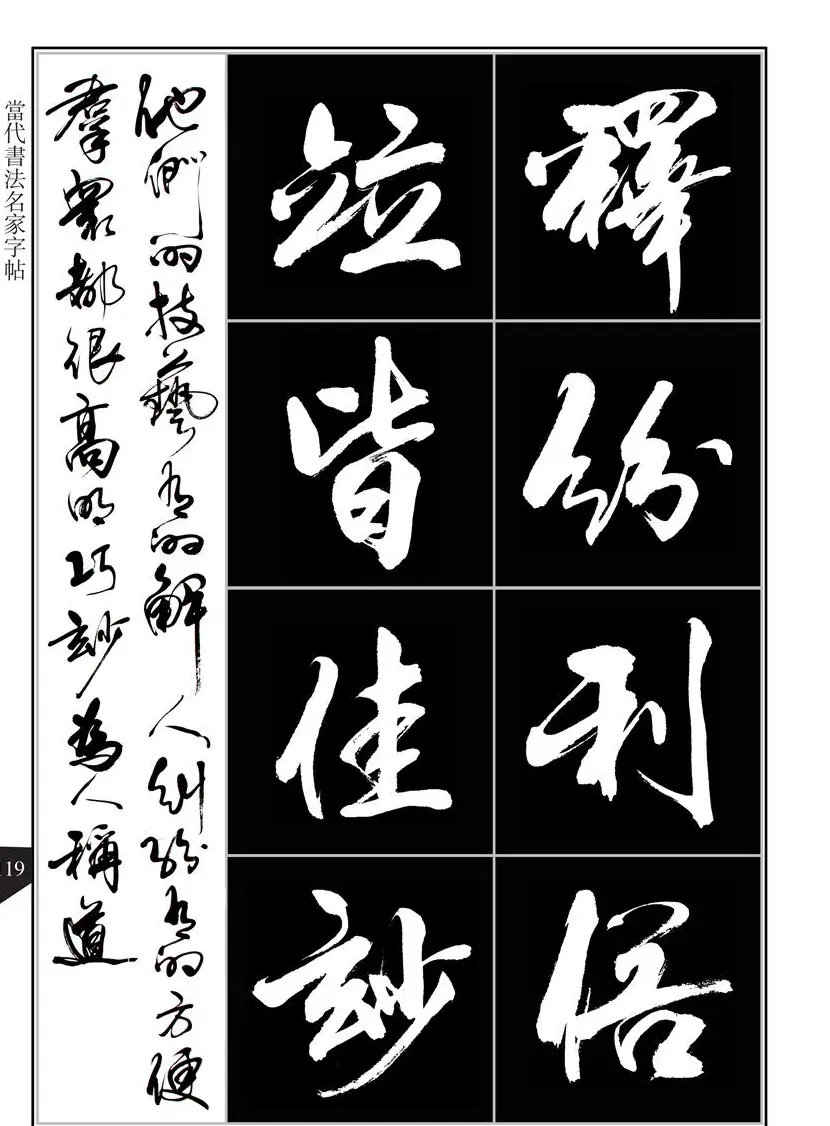 當代書法名家字帖
釋紛利俗
竝皆佳玅
他們的技藝有的解人糾紛有的方便
羣衆都很高明巧玅為人稱道
19